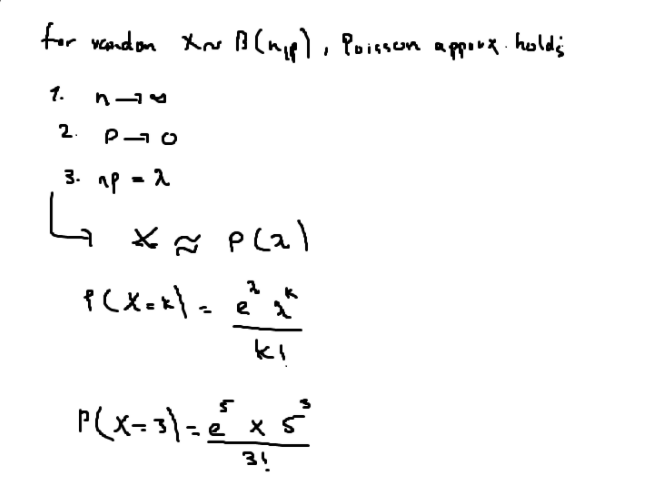 for random X~ B(n,p), Poisson approx. holds
1. n → ∞
2. p → 0
3. np = λ
↳ X ≈ P(λ)
P(X=k) = e^λ λ^k / k!
P(X=3) = e^5 × 5^3 / 3!